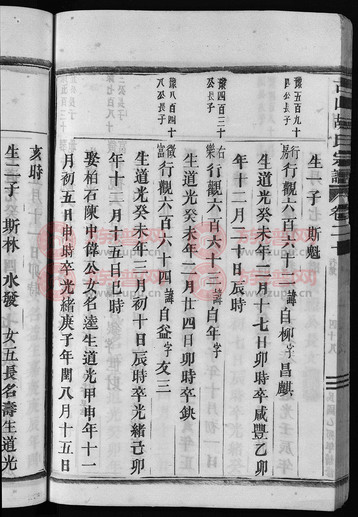 生一子 斯魁
豫五百九十四公長子
行易行觀六百六十二諱自柳字昌麒
生道光癸未年二月十七日卯時卒咸豐乙卯
年十二月二十日辰時
豫四百三十四公長子
行觀六百六十三諱自年字
生道光癸未年二月廿四日卯時卒缺
豫八百四十八公長子
行觀六百六十四諱自益字友三
生道光癸未年三月初十日辰時卒光緒己卯
年十二月十五日巳時
娶柏石陳中偉公女名逵生道光甲申年十一
月初五日申時卒光緒庚子年閏八月十五日
亥時
生二子 斯林 永發 女五長名壽生道光